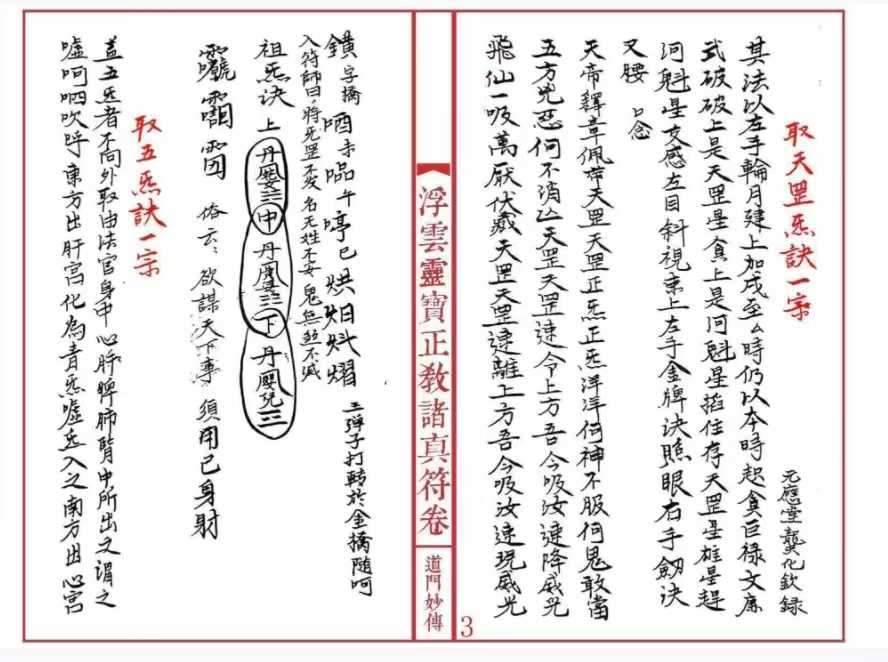 取天罡炁訣一宗
元應堂龔化欽録
其法以左手輪月建上加戌至厶時仍以本時起貪巨禄文廉
武破破上是天罡星貪上是河魁星掐住存天罡星雄星趕
河魁星交感左目斜視東上左手金牌决照眼右手劍决
叉腰 口念
天帝釋章佩帶天罡天罡正炁正炁洋洋何神不服何鬼敢當
五方兇惡何不消亡天罡天罡速令上方吾今吸汝速降威光
飛仙一吸萬厭伏藏天罡天罡速離上方吾今吸汝速現威光
浮雲靈寶正教諸真符卷
道門妙傳
3
鐄字橋 哂未 午 停巳 烘 熠 三彈子打轉於金橋随呵
入符師曰將死罡不灾名无姓不安鬼無 不滅
祖炁訣 上 丹 三 中 丹 三 下 丹 兒三
俗云 欲謀天下事 須用已身財
取五炁訣一宗
盖五炁者不向外取由法官身中心肝脾肺腎中所出之謂之
嘘呵呬吹呼東方出肝宫化為青炁嘘炁入之南方出心宫